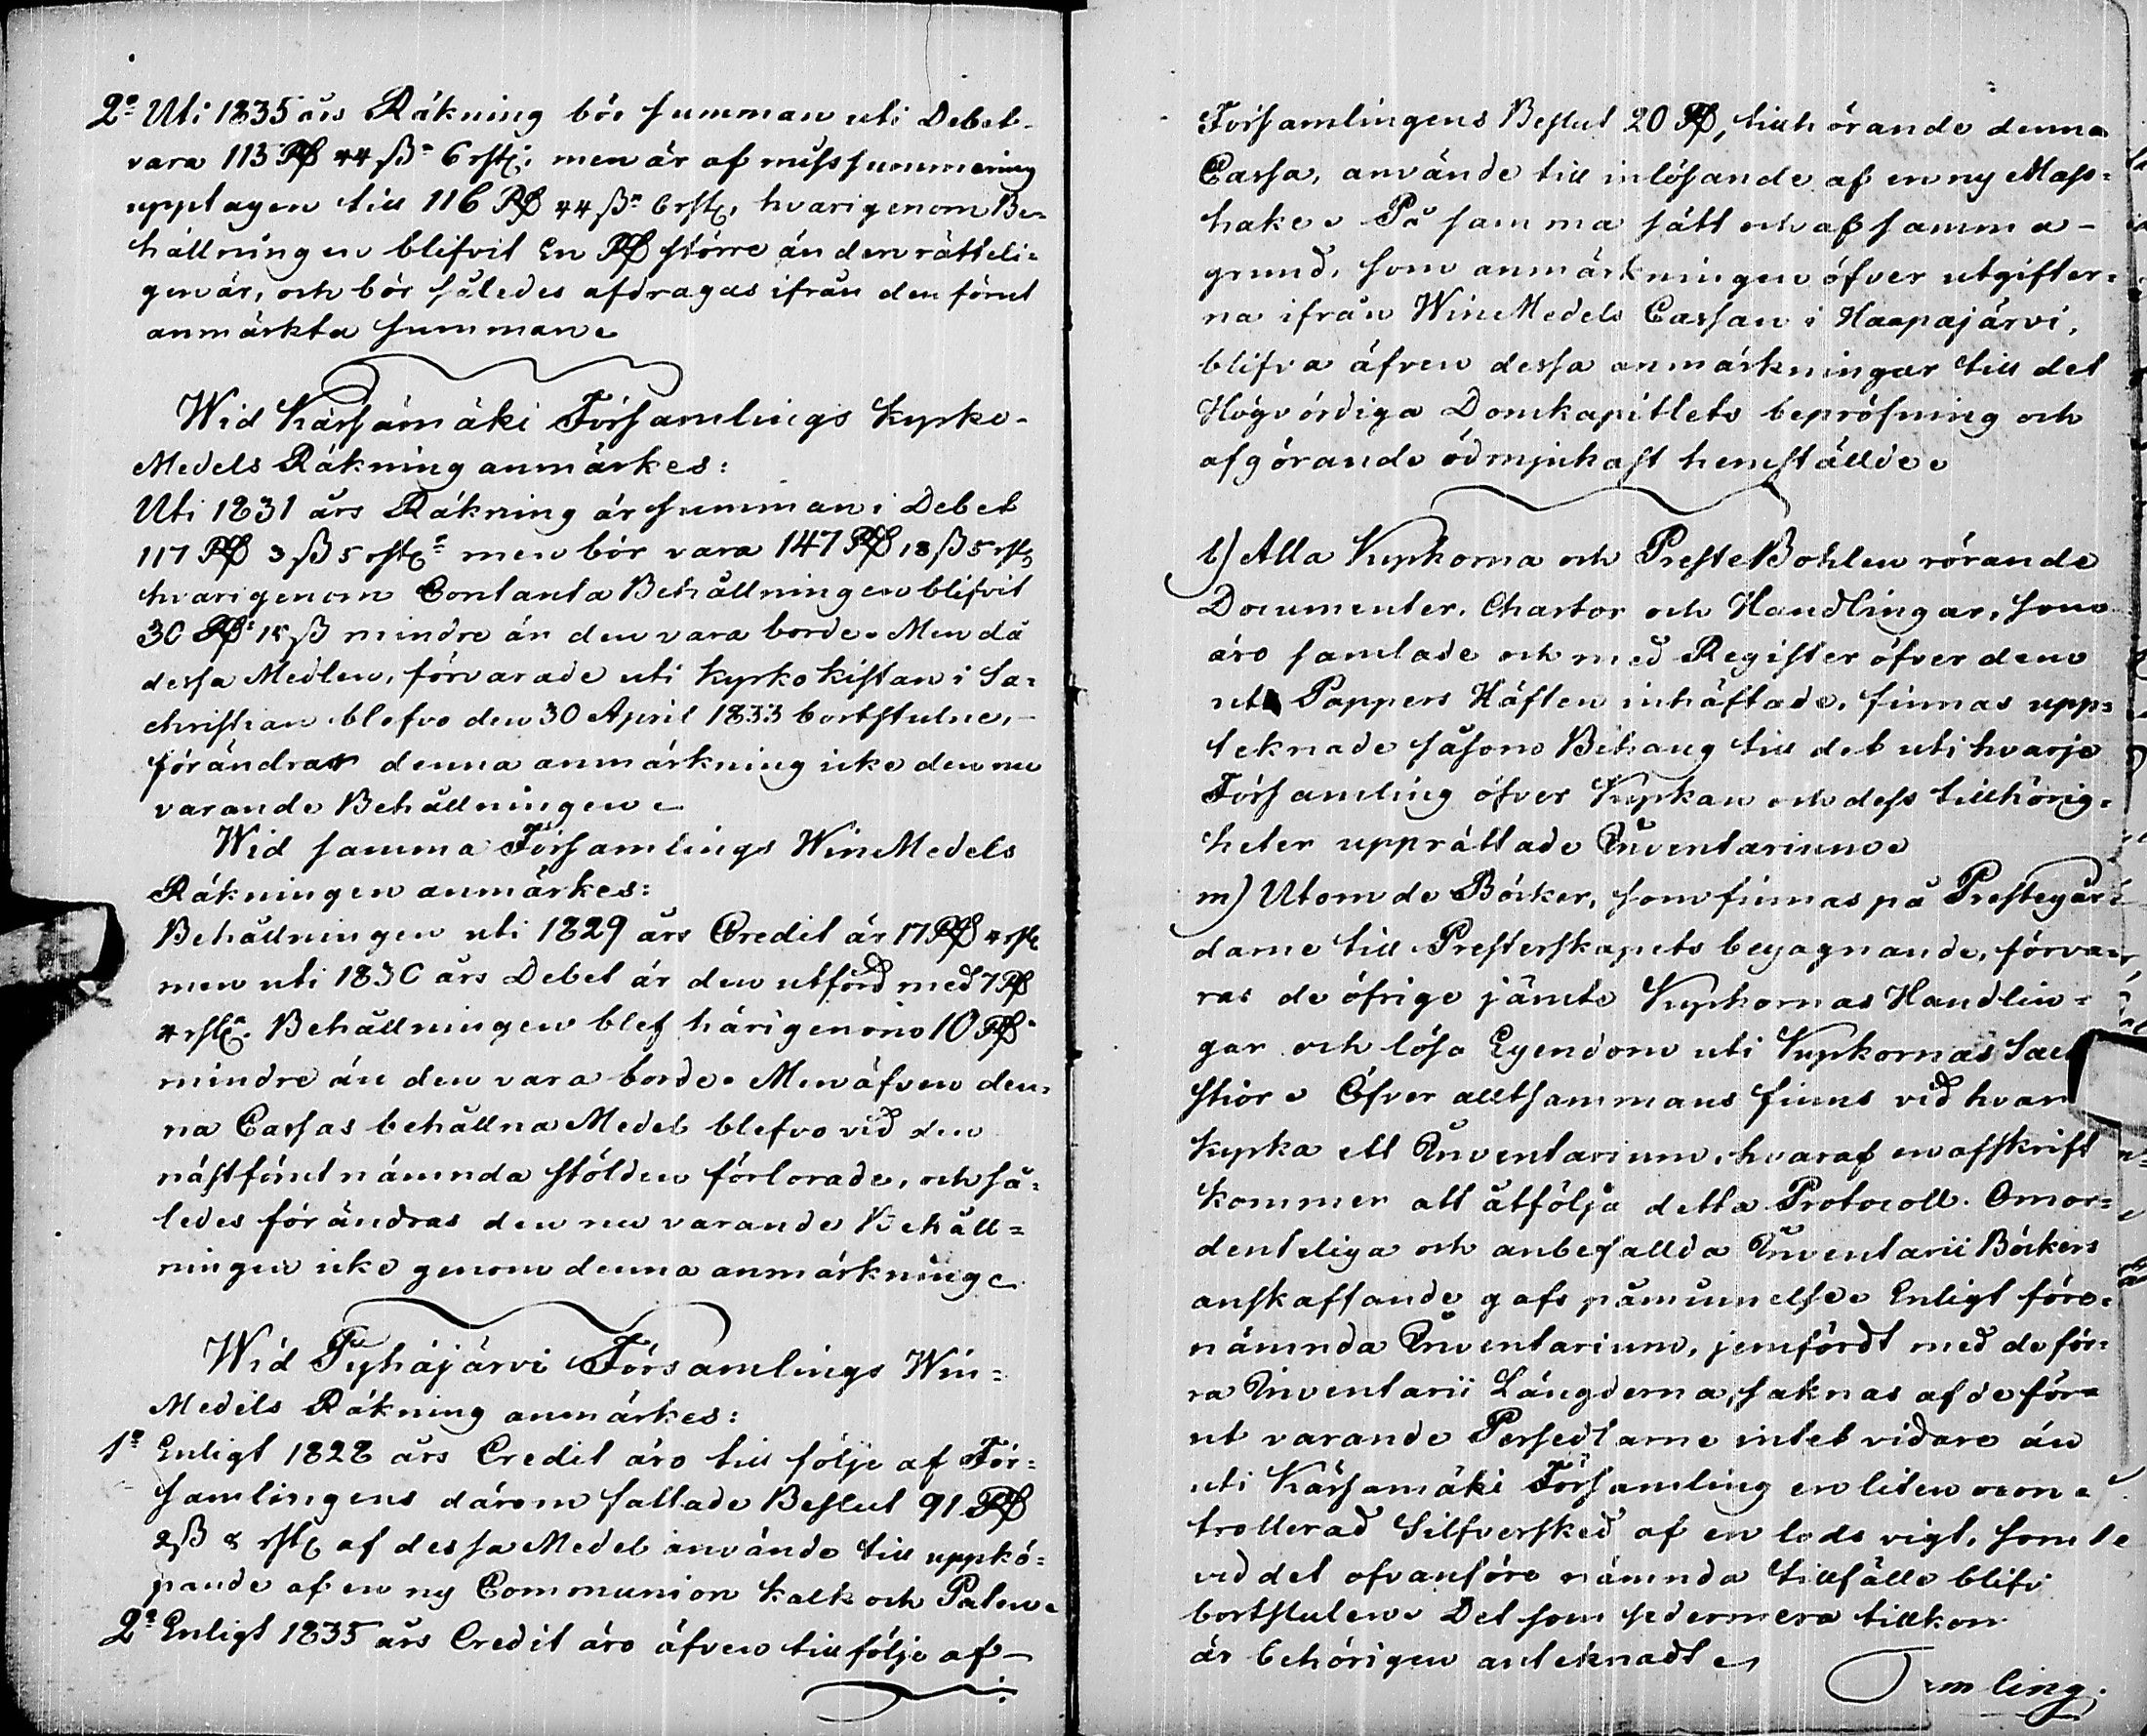 2:o Uti 1835 års Räkning bör summan uti Debet
vara 113 Rß 44 ß:r 6 rst:r men är af missummering
upptagen till 116 Rß 44 ß:r 6 rst:r, hvarigenom Be-
hållningen blifvit En Rß större än den rätteli-
gen är, och bör således afdragas ifrån den förut
anmärkta summan.
Wid Kärsämäki Församlings Kyrko-
Medels Räkning anmärkes:
Uti 1831 års Räkning är summan i Debet
117 Rß 3 ß 5 rst:r men bör vara 147 Rß 18 ß 5 rst:r
hvarigenom Contanta Behållningen blifvit
30 Rß 15 ß mindre än den vara borde. Men då
dessa Medlen, förvarade uti Kyrko kistan i Sa-
christian blefvo den 30 April 1833 bortstulne,-
förändrar denna anmärkning icke den nu
varande Behållningen.
Wid samma Församlings WinMedels
Räkningen anmärkes:
Behållningen uti 1829 års Credit är 17 Rß 4 rst:r
men uti 1830 års Debet är den utförd med 7 Rß
4 rst:r. Behållningen blef härigenom 10 Rß
mindre än den vara borde. Men äfven den-
na Cassas behållna Medel blefvo vid den
nästförut nämnda stölden förlorade, och så-
ledes förändras den nu varande Behåll=
ningen icke genom denna anmärkning.
Wid Pyhäjärvi Församlings Win=
Medels Räkning anmärkes:
1:o Enligt 1828 års Credit äro till följe af För=
samlingens därom fattade Beslut 91 Rß
2 ß 8 rst:r af dessa Medel använde till uppkö=
pande af en ny Communion kalk och Paten.
2:o Enligt 1835 års Credit äro äfven till följe af-
Församlingens Beslut 20 Rß, tillhörande denna
Cassa, använde till inlösande af en ny Mass=
hake. På samma sätt och af samma-
grund, som anmärkningen öfver utgifter=
na ifrån WineMedels Cassan i Haapajärvi,
blifva äfven dessa anmärkningar till det
Högvördiga Domkapitlets bepröfning och
afgörande ödmjukast hemställde.
l) Alla Kyrkorna och PresteBohlen rörande
Documenter, Chartor och Handlingar, som
äro samlade och med Register öfver dem
uti Pappers Häften inhäftade, finnas upp=
teknade såsom Bihang till det uti hvarje
Församling öfver Kyrkan och dess tillhörig-
heter upprättade Inventarium.
m) Utom de Böcker, som finnas på Prestegår
darne till Presterskapets begagnande, förva-
ras de öfrige jämte Kyrkornas Handlin=
gar och lösa Egendom uti Kyrkornas Sac
stior. Öfver alltsammans finns vid hvar
kyrka ett Inventarium, hvaraf en afskrift
kommer att åtfölja detta Protocoll. Om or=
denteliga och anbefallda Inventarii Böckers
anskaffande gafs påminnelse. Enligt före-
nämnda Inventarium, jemfördt med de för=
ra Inventarii Längderna, saknas af de för=
ut varande Persedlarne intet vidare än
uti Kärsämäki Församling en liten ocon=
trollerad Silfversked af en lods vigt, som
vid det ofvanföre nämnda tillfälle blifv
bortstulen. Det som sedermera tillkom
är behörigen anteknadt.